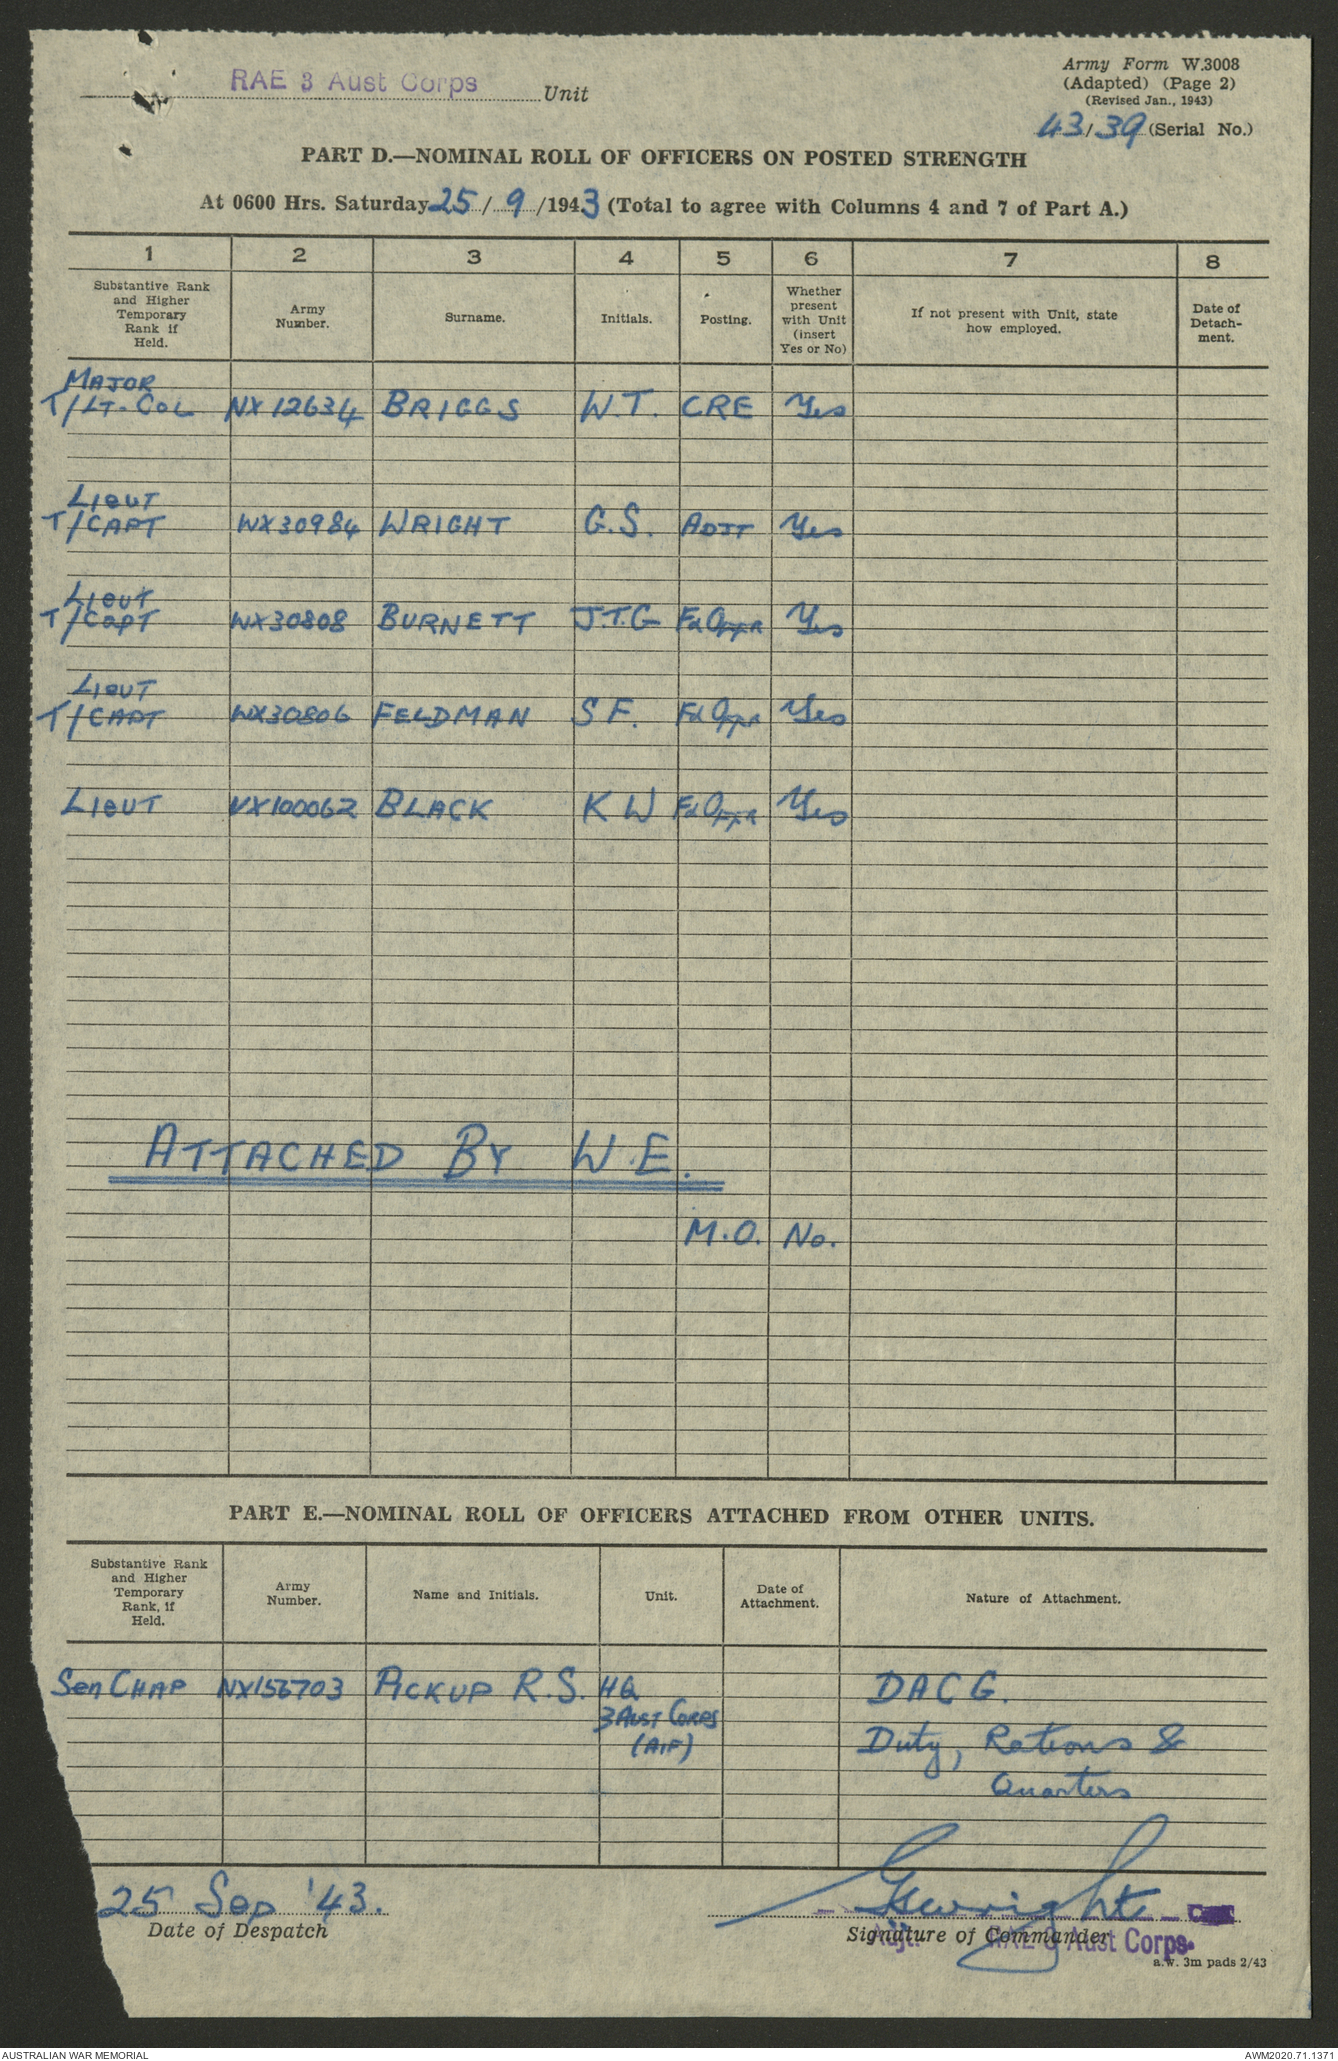 RAE 3 Aust Corps Unit
Army Form W.3008
(Adapted) (Page 2)
(Revised Jan., 1943)
43/39 (Serial No.)
PART D.—NOMINAL ROLL OF OFFICERS ON POSTED STRENGTH
At 0600 Hrs. Saturday 25/9/1943 (Total to agree with Columns 4 and 7 of Part A.)
1 2 3 4 5 6 7 8
Substantive Rank
and Higher
Temporary
Rank if
Held.
Army
Number.
Surname.
Initials.
Posting.
Whether
present
with Unit
(insert
Yes or No)
If not present with Unit, state
how employed.
Date of
Detach-
ment.
MAJOR
T/LT-COL NX12634 BRIGGS W.T. CRE Yes
LIEUT
T/CAPT WX30984 WRIGHT G.S. ADJT Yes
LIEUT
T/CAPT WX30808 BURNETT J.T.G Fd Offr Yes
LIEUT
T/CAPT WX30806 FELDMAN S F. Fd Offr Yes
LIEUT VX100062 BLACK K W Fd Offr Yes
ATTACHED BY W.E.
M.O. No.
PART E.—NOMINAL ROLL OF OFFICERS ATTACHED FROM OTHER UNITS.
Substantive Rank
and Higher
Temporary
Rank, if
Held.
Army
Number.
Name and Initials.
Unit.
Date of
Attachment.
Nature of Attachment.
Sen CHAP NX156703 PICKUP R.S. HQ DACG.
3 AUST CORPS
(AIF)
Duty, Rations &
Quarters
25 Sep '43.
Date of Despatch
GSWright
Signature of Commander
Adjt. RAE 3 Aust Corps.
a.w. 3m pads 2/43
AUSTRALIAN WAR MEMORIAL
AWM2020.71.1371